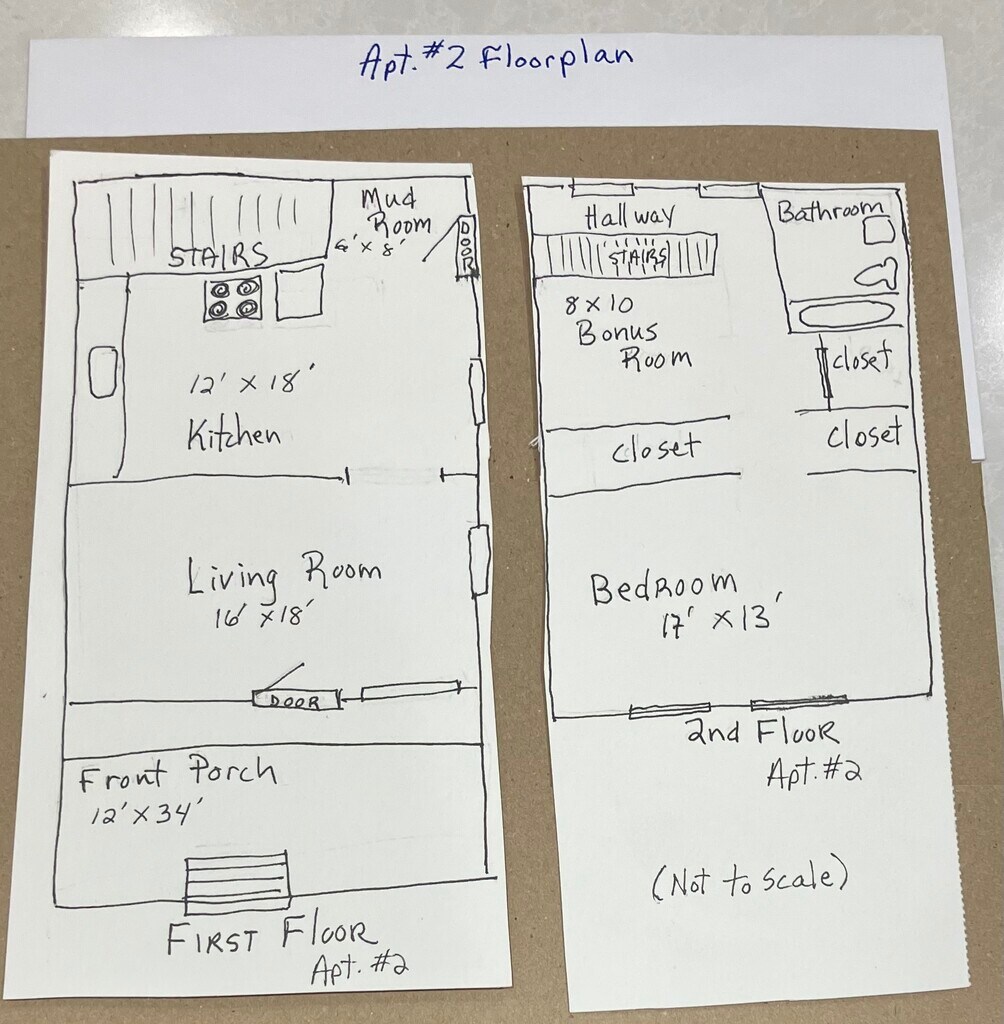 Apt. #2 Floorplan
STAIRS
Mud
Room
6' x 8'
DOOR
12' x 18'
Kitchen
Living Room
16' x 18'
DOOR
Front Porch
12' x 34'
FIRST FLOOR
Apt. #2
Hallway
STAIRS
Bathroom
8 x 10
Bonus
Room
closet
closet
closet
BedRoom
17' x 13'
2nd FLOOR
Apt. #2
(Not to scale)